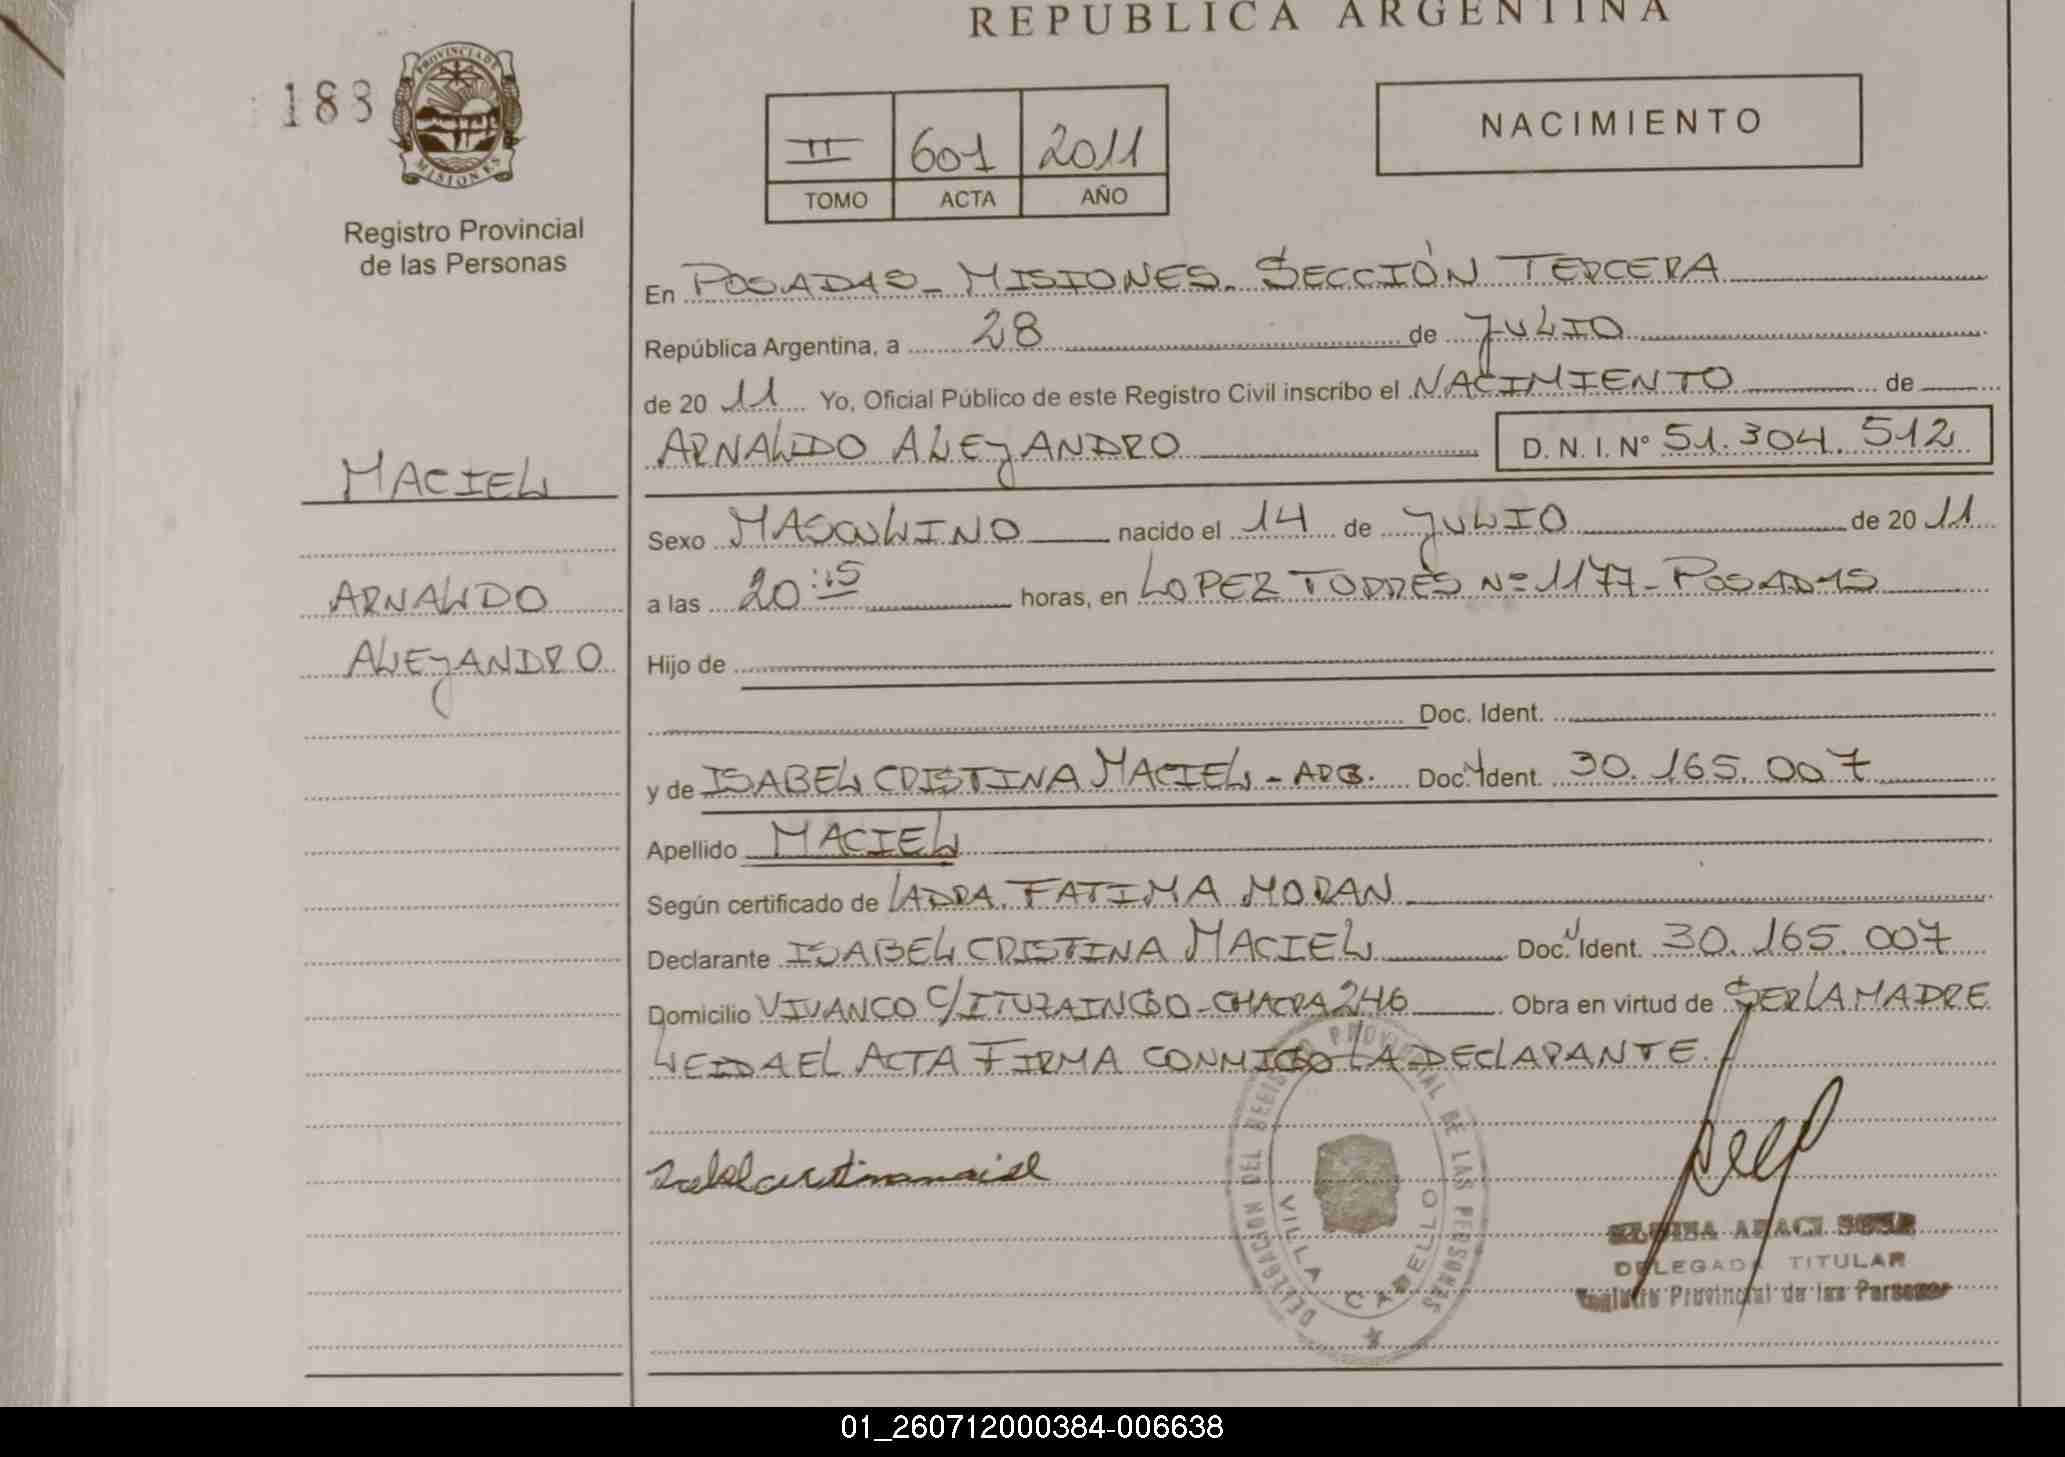 REPUBLICA ARGENTINA
183
PROVINCIA DE
MISIONES
Registro Provincial
de las Personas
II 601 2011
TOMO ACTA AÑO
NACIMIENTO
En POSADAS - MISIONES. SECCIÓN TERCERA
República Argentina, a 28 de JULIO
de 20 11 Yo, Oficial Público de este Registro Civil inscribo el NACIMIENTO de
ARNALDO ALEJANDRO D.N.I. Nº 51.304.512
MACIEL
Sexo MASCULINO nacido el 14 de JULIO de 20 11
ARNALDO
a las 20:15 horas, en LOPEZ TORRES Nº 1177 - POSADAS
ALEJANDRO
Hijo de
Doc. Ident.
y de ISABEL CRISTINA MACIEL - ARG. Doc. Ident. 30.165.007
Apellido MACIEL
Según certificado de LA DRA. FATIMA MORAN
Declarante ISABEL CRISTINA MACIEL Doc. Ident. 30.165.007
Domicilio VIVANCO C/ITUZAINGO - CHACRA 246 Obra en virtud de SER LA MADRE
LEIDA EL ACTA FIRMA CONMIGO LA DECLARANTE.
DELEGACION DEL REGISTRO PROVINCIAL DE LAS PERSONAS
VILLA CABELLO
DELEGADA TITULAR
Registro Provincial de las Personas
01_260712000384-006638